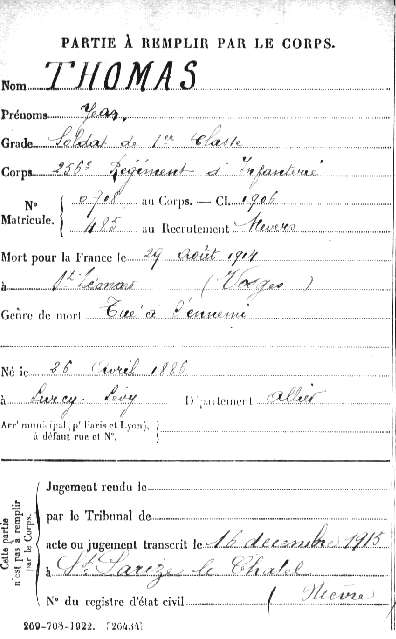 PARTIE À REMPLIR PAR LE CORPS.
Nom THOMAS
Prénoms Jean.
Grade Soldat de 1re Classe
Corps 256e Régiment d'Infanterie
N° Matricule. 0708 au Corps. — Cl. 1906
485 au Recrutement Nevers
Mort pour la France le 29 Août 1914
à St Léonard (Vosges)
Genre de mort Tué à l'ennemi
Né le 26 Avril 1886
à Lurcy-Lévy Département Allier
Arrt municipal (pr Paris et Lyon),
à défaut rue et N°.
Cette partie
n'est pas à remplir
par le Corps.
Jugement rendu le
par le Tribunal de
acte ou jugement transcrit le 16 décembre 1915
à St Parize le Chatel
N° du registre d'état civil (Nièvre)
269-708-1922. [26434]